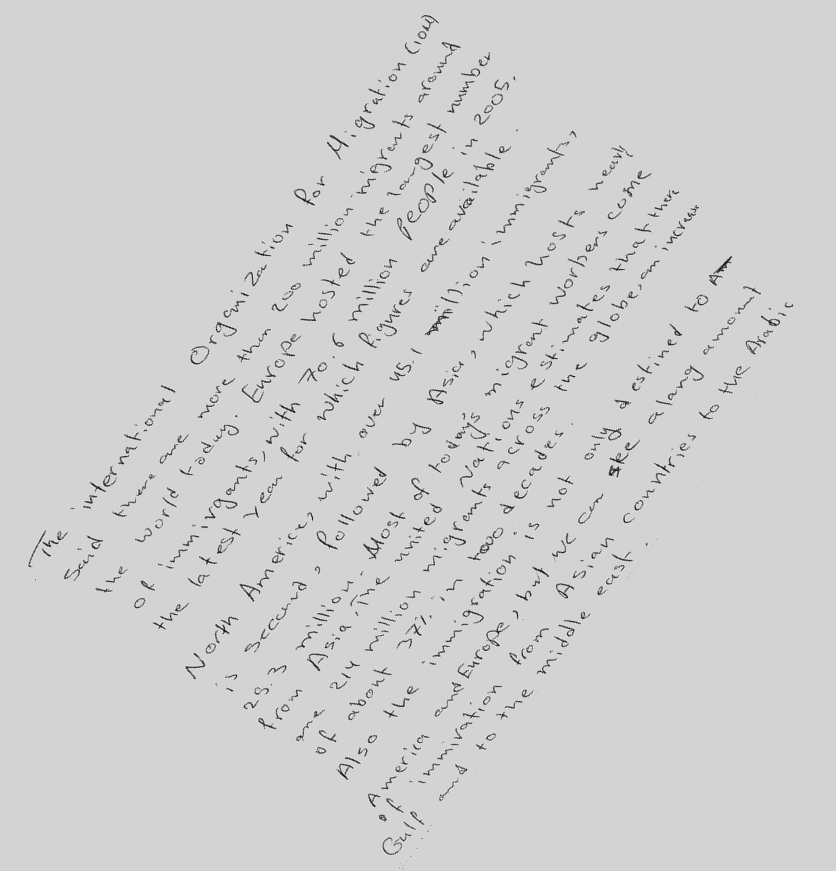 The international Organization for Migration (IOM)
said there are more than 200 million migrants around
the world today. Europe hosted the largest number
of immirgants, with 70.6 million people in 2005.
the latest year for which figures are available.
North America, with over 45.1 million immigrants,
is second, followed by Asia, which hosts nearly
25.3 million. Most of today's migrant workers come
from Asia. The united Nations estimates that there
are 214 million migrants across the globe, an increase
of about 37% in two decades.
Also the immigration is not only destined to
America and Europe, but we can see alang amount
of immiration from Asian countries to the Arabic
Gulf and to the middle east.